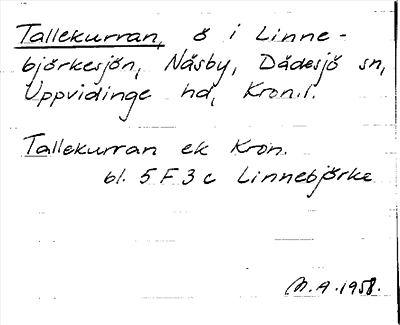 Tallekurran, ö i Linne-
björkesjön, Näsby, Dädesjö sn,
Uppvidinge hd, Kron.l.
Tallekurran ek Kron.
bl. 5 F 3 c Linnebjörke
M.A. 1958.